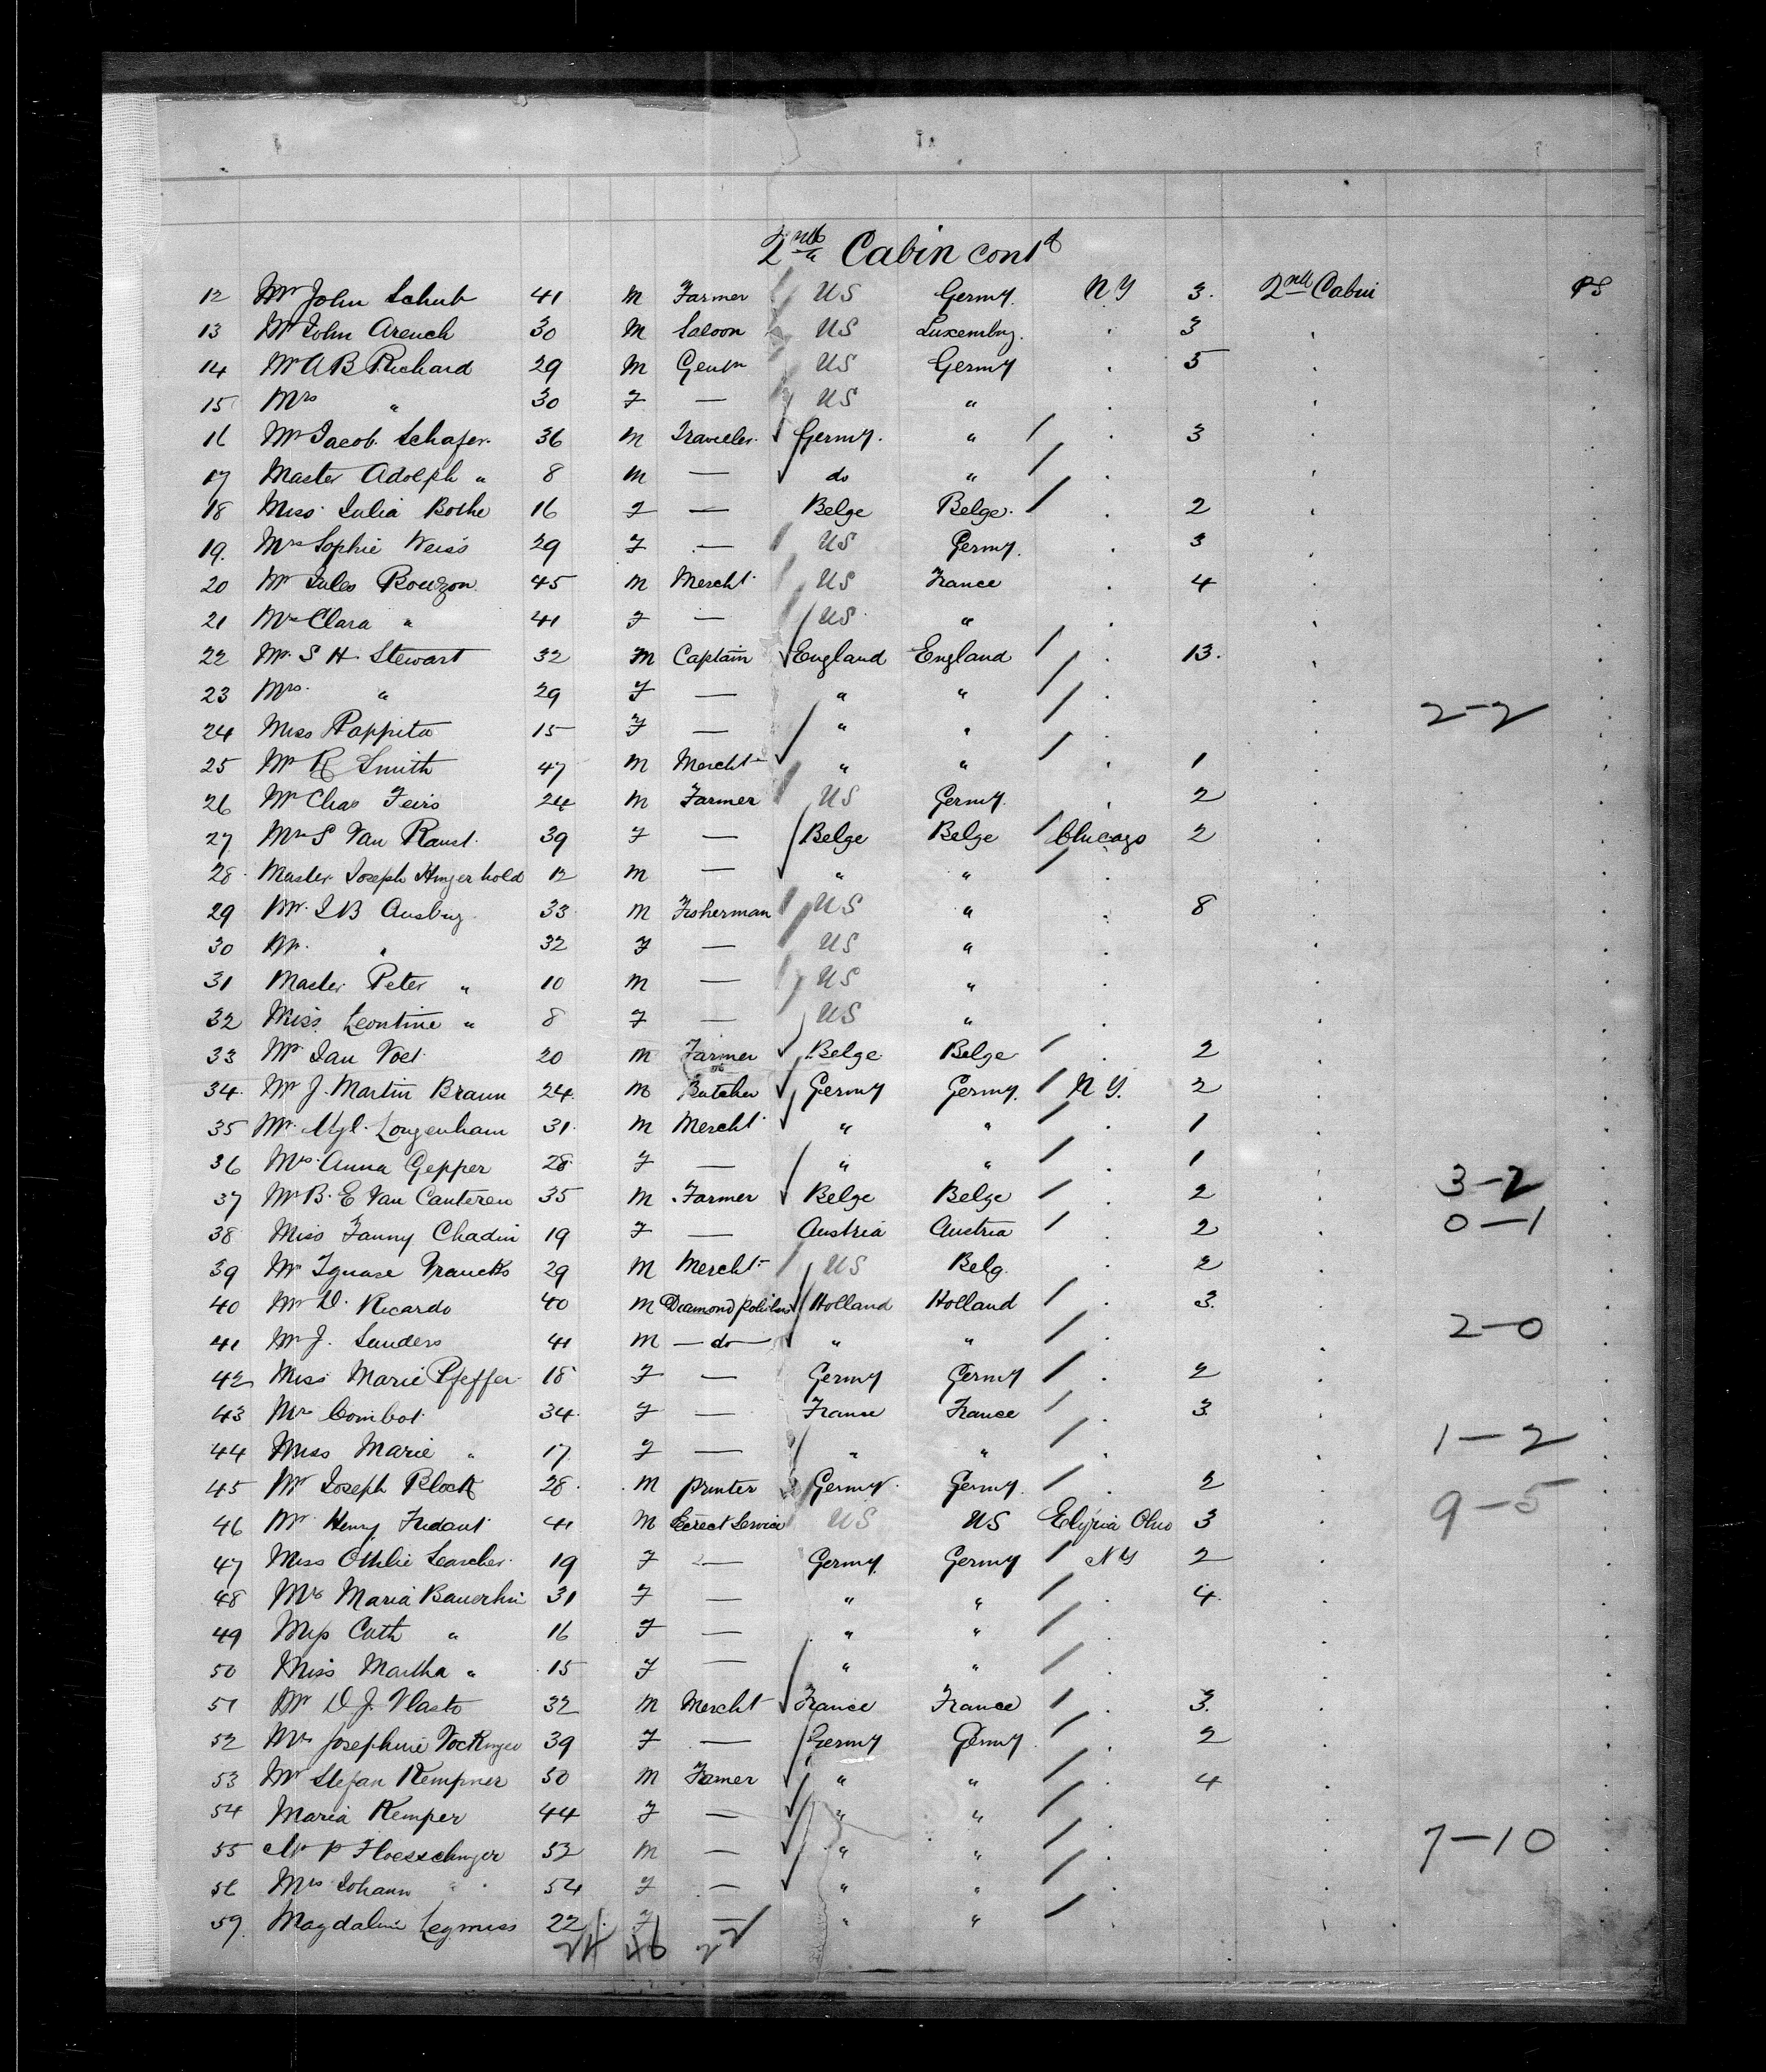 2nd Cabin contd
12 Mr John Schub 41 M Farmer US Germy. NY 3. 2nd Cabin PS
13 Mr John Arench 30 M Saloon US Luxemburg. 3
14 Mr A B Richard 29 M Gentn US Germy 5
15 Mrs " 30 F — US "
16 Mr Jacob Schafer 36 M Traveller Germy. " 3
17 Master Adolph " 8 M — do "
18 Miss Julia Bothe 16 F — Belge Belge. 2
19. Mrs Sophie Weiss 29 F — US Germy. 3
20 Mr Jules Bouzon 45 M Mercht. US France 4
21 Mrs Clara " 41 F — US "
22 Mr. S H Stewart 32 M Captain England England 13.
23 Mrs. " 29 F — " "
2-2
24 Miss Pappita 15 F — " "
25 Mr R Smith 47 M Mercht " " 1
26 Mr Chas Feirs 24 M Farmer US Germy. 2
27 Mrs S Van Ranst. 39 F — Belge Belge Chicago 2
28 Master Joseph Hingerhold 12 M — " "
29 Mr. J B Ausburg 33 M Fisherman US " 8
30 Mr. " 32 F — US "
31 Master Peter " 10 M — US "
32 Miss Leontine " 8 F — US "
33 Mr Jan Voet 20 M Farmer Belge Belge 2
34 Mr J. Martin Braun 24 M Butcher Germy Germy. N Y. 2
35 Mr. Longenham 31. M Mercht " " 1
36 Mrs. Anna Gepper 28 F — " " 1
37 Mr B. E Van Canteren 35 M Farmer Belge Belge 2 3-2
38 Miss Fanny Chadin 19 F — Austria Austria 2 0-1
39 Mr Ignase Vrancks 29 M Mercht US Belg. 2
40 Mr D. Ricardo 40 M Diamond polisher Holland Holland 3.
41 Mr J. Sanders 41 M — do — " " 2-0
42 Miss Marie Pfeffer 18 F — Germy Germy 2
43 Mrs Combot 34 F — France France 3.
44 Miss Marie " 17 F — " " 1-2
45 Mr Joseph Block 28 M printer Germy. Germy. 2 9-5
46 Mr Henry Fridant 41 M Secret Service US US Elyria Ohio 3
47 Miss Othlie Searcher 19 F — Germy. Germy NY 2
48 Mrs Maria Bauerlin 31 F — " " 4.
49 Miss Cath " 16 F — " "
50 Miss Martha " 15 F — " "
51 Mr D J. Vlasto 32 M Mercht France France 3.
52 Mrs Josephine 39 F — Germy Germy 2
53 Mr Stefan Kempner 50 M Famer " " 4
54 Maria Kemper 44 F — " "
55 Mr P Hoesschinger 52 M — " " 7-10
56 Mrs Johann " 54 F — " "
59. Magdalina Legmiss 22 F — " "
24 46 22